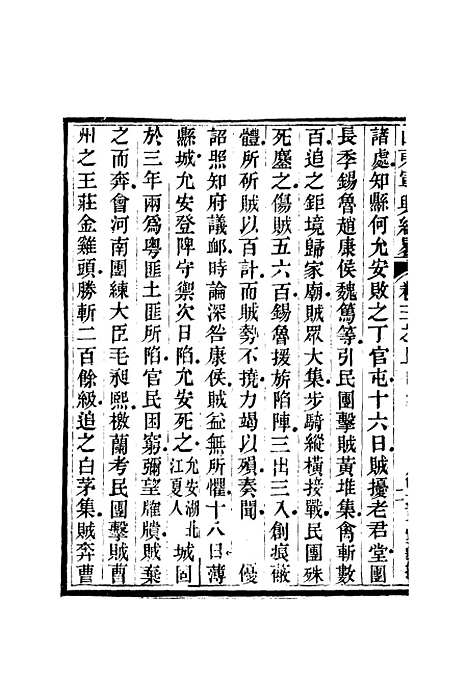 諸處知縣何允安敗之丁官屯十六日賊擾老君堂團
長季錫魯趙康侯魏篤等引民團擊賊黃堆集禽斬數
百追之鉅境歸家廟賊眾大集步騎縱橫接戰民團殊
死鏖之傷賊五六百錫魯援旂陷陣三出三入創痕蔽
體所斫賊以百計而賊勢不撓力竭以殞奏聞　優
詔照知府議䘏時論深咎康侯賊益無所懼十八日薄
縣城允安登陴守禦次日陷允安死之允安湖北江夏人城固
於三年兩爲粵匪土匪所陷官民困窮彌望雕殯賊棄
之而奔會河南團練大臣毛昶熙檄蘭考民團擊賊曹
州之王莊金雞頭勝斬二百餘級追之白茅集賊奔曹